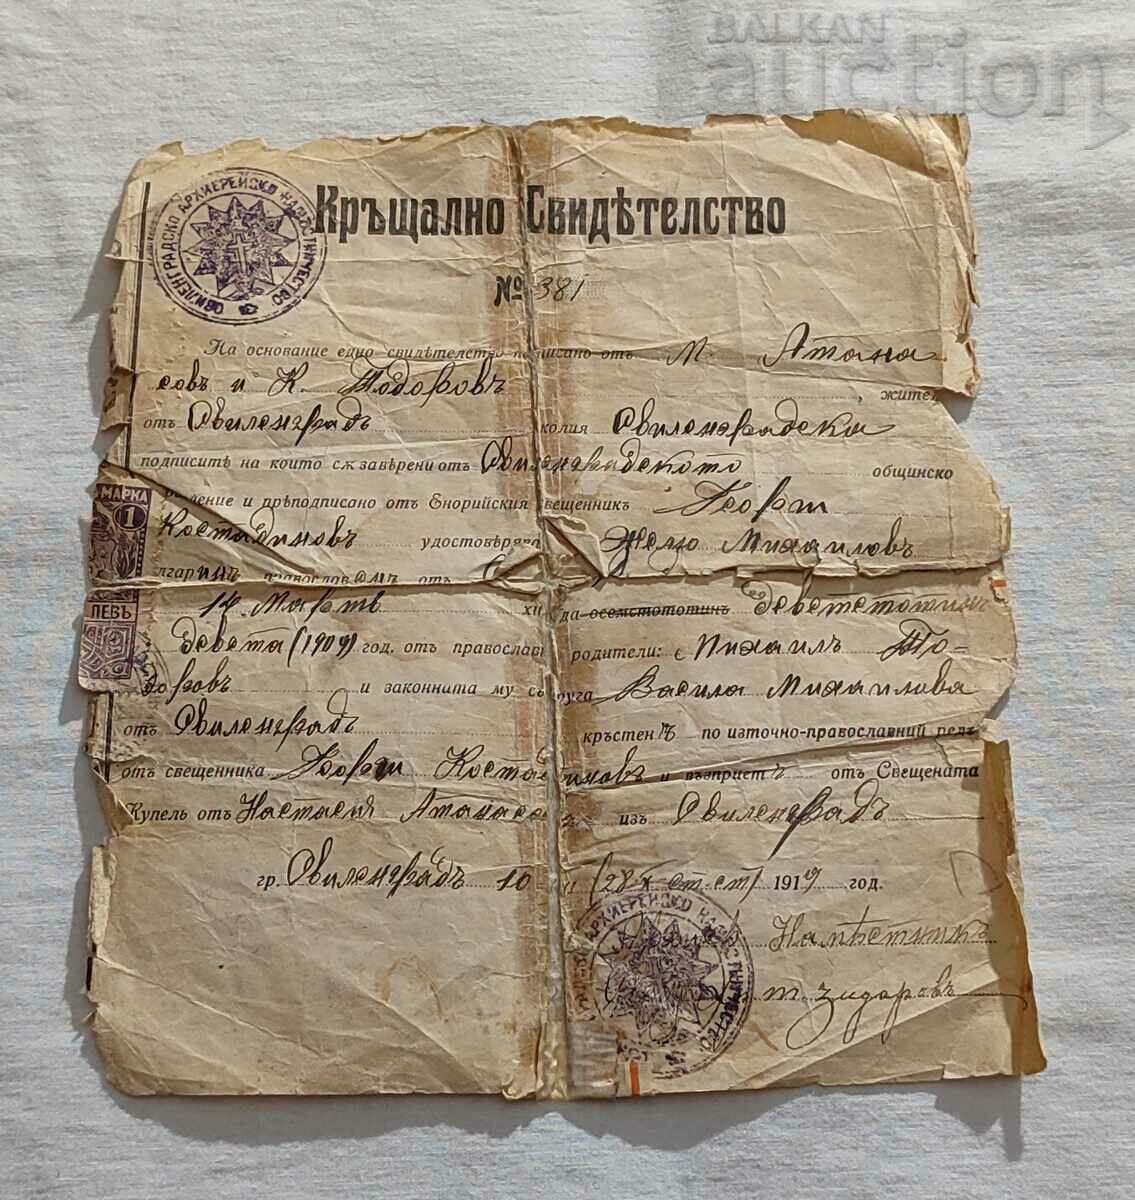 BALKAN
auction
СВИЛЕНГРАДСКО АРХИЕРЕЙСКО НАМѢСТНИЧЕСТВО
Кръщално Свидѣтелство
№ 381
На основание едно свидѣтелство подписано отъ М. Атана
совъ и К. Тодоровъ жител
отъ Свиленградъ колия Свиленградска
подписитѣ на които сѫ завѣрени отъ Свиленградското общинско
вление и прѣподписано отъ Енорийския свещенникъ Георги
Костадиновъ удостовѣрява Желю Михаиловъ
лгаринъ православенъ отъ
МАРКА
1
ЛЕВЪ
14 Мартъ хиляда осемстототинъ деветстотинъ
девета (1909) год. отъ православни родители: с Михаилъ То-
доровъ и законната му съпруга Васила Михаилова
отъ Свиленградъ кръстенъ по източно-православний редъ
отъ свещенника Георги Костадиновъ и възприетъ отъ Свещената
Купель отъ Настасия Атанасова изъ Свиленградъ
гр. Свиленградъ 10 (28 ст. ст) 1919 год.
Намѣстникъ
Зидаровъ
АРХИЕРЕЙСКО НАМѢСТНИЧЕСТВО